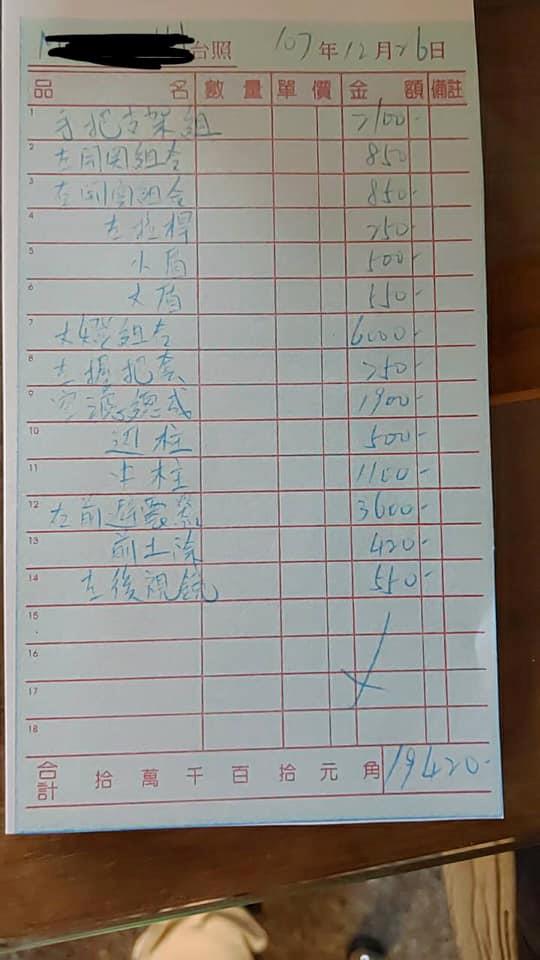 台照 107年12月26日
品名 數量 單價 金額 備註
1 手把支架組 2100-
2 左開関組合 850
3 左開関組合 850-
4 左拉桿 250-
5 小盾 500-
6 大盾 550-
7 大燈組合 6000-
8 左握把套 250-
9 空濾總成 1900-
10 边柱 500-
11 中柱 1100-
12 左前避震 3600-
13 前土 420-
14 左後視鏡 550-
15
16
17
18
合計 拾萬千百拾元角 19420-